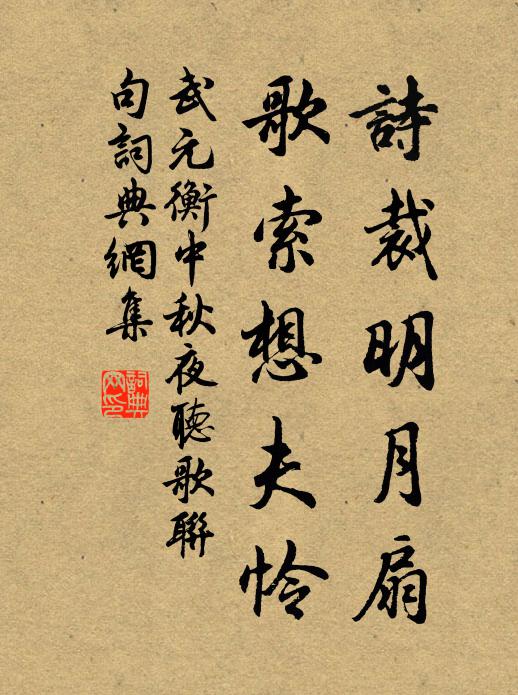 詩裁明月扇
歌索想夫怜
武元衡中秋夜聽歌聯
句詞典網集
詞典網印